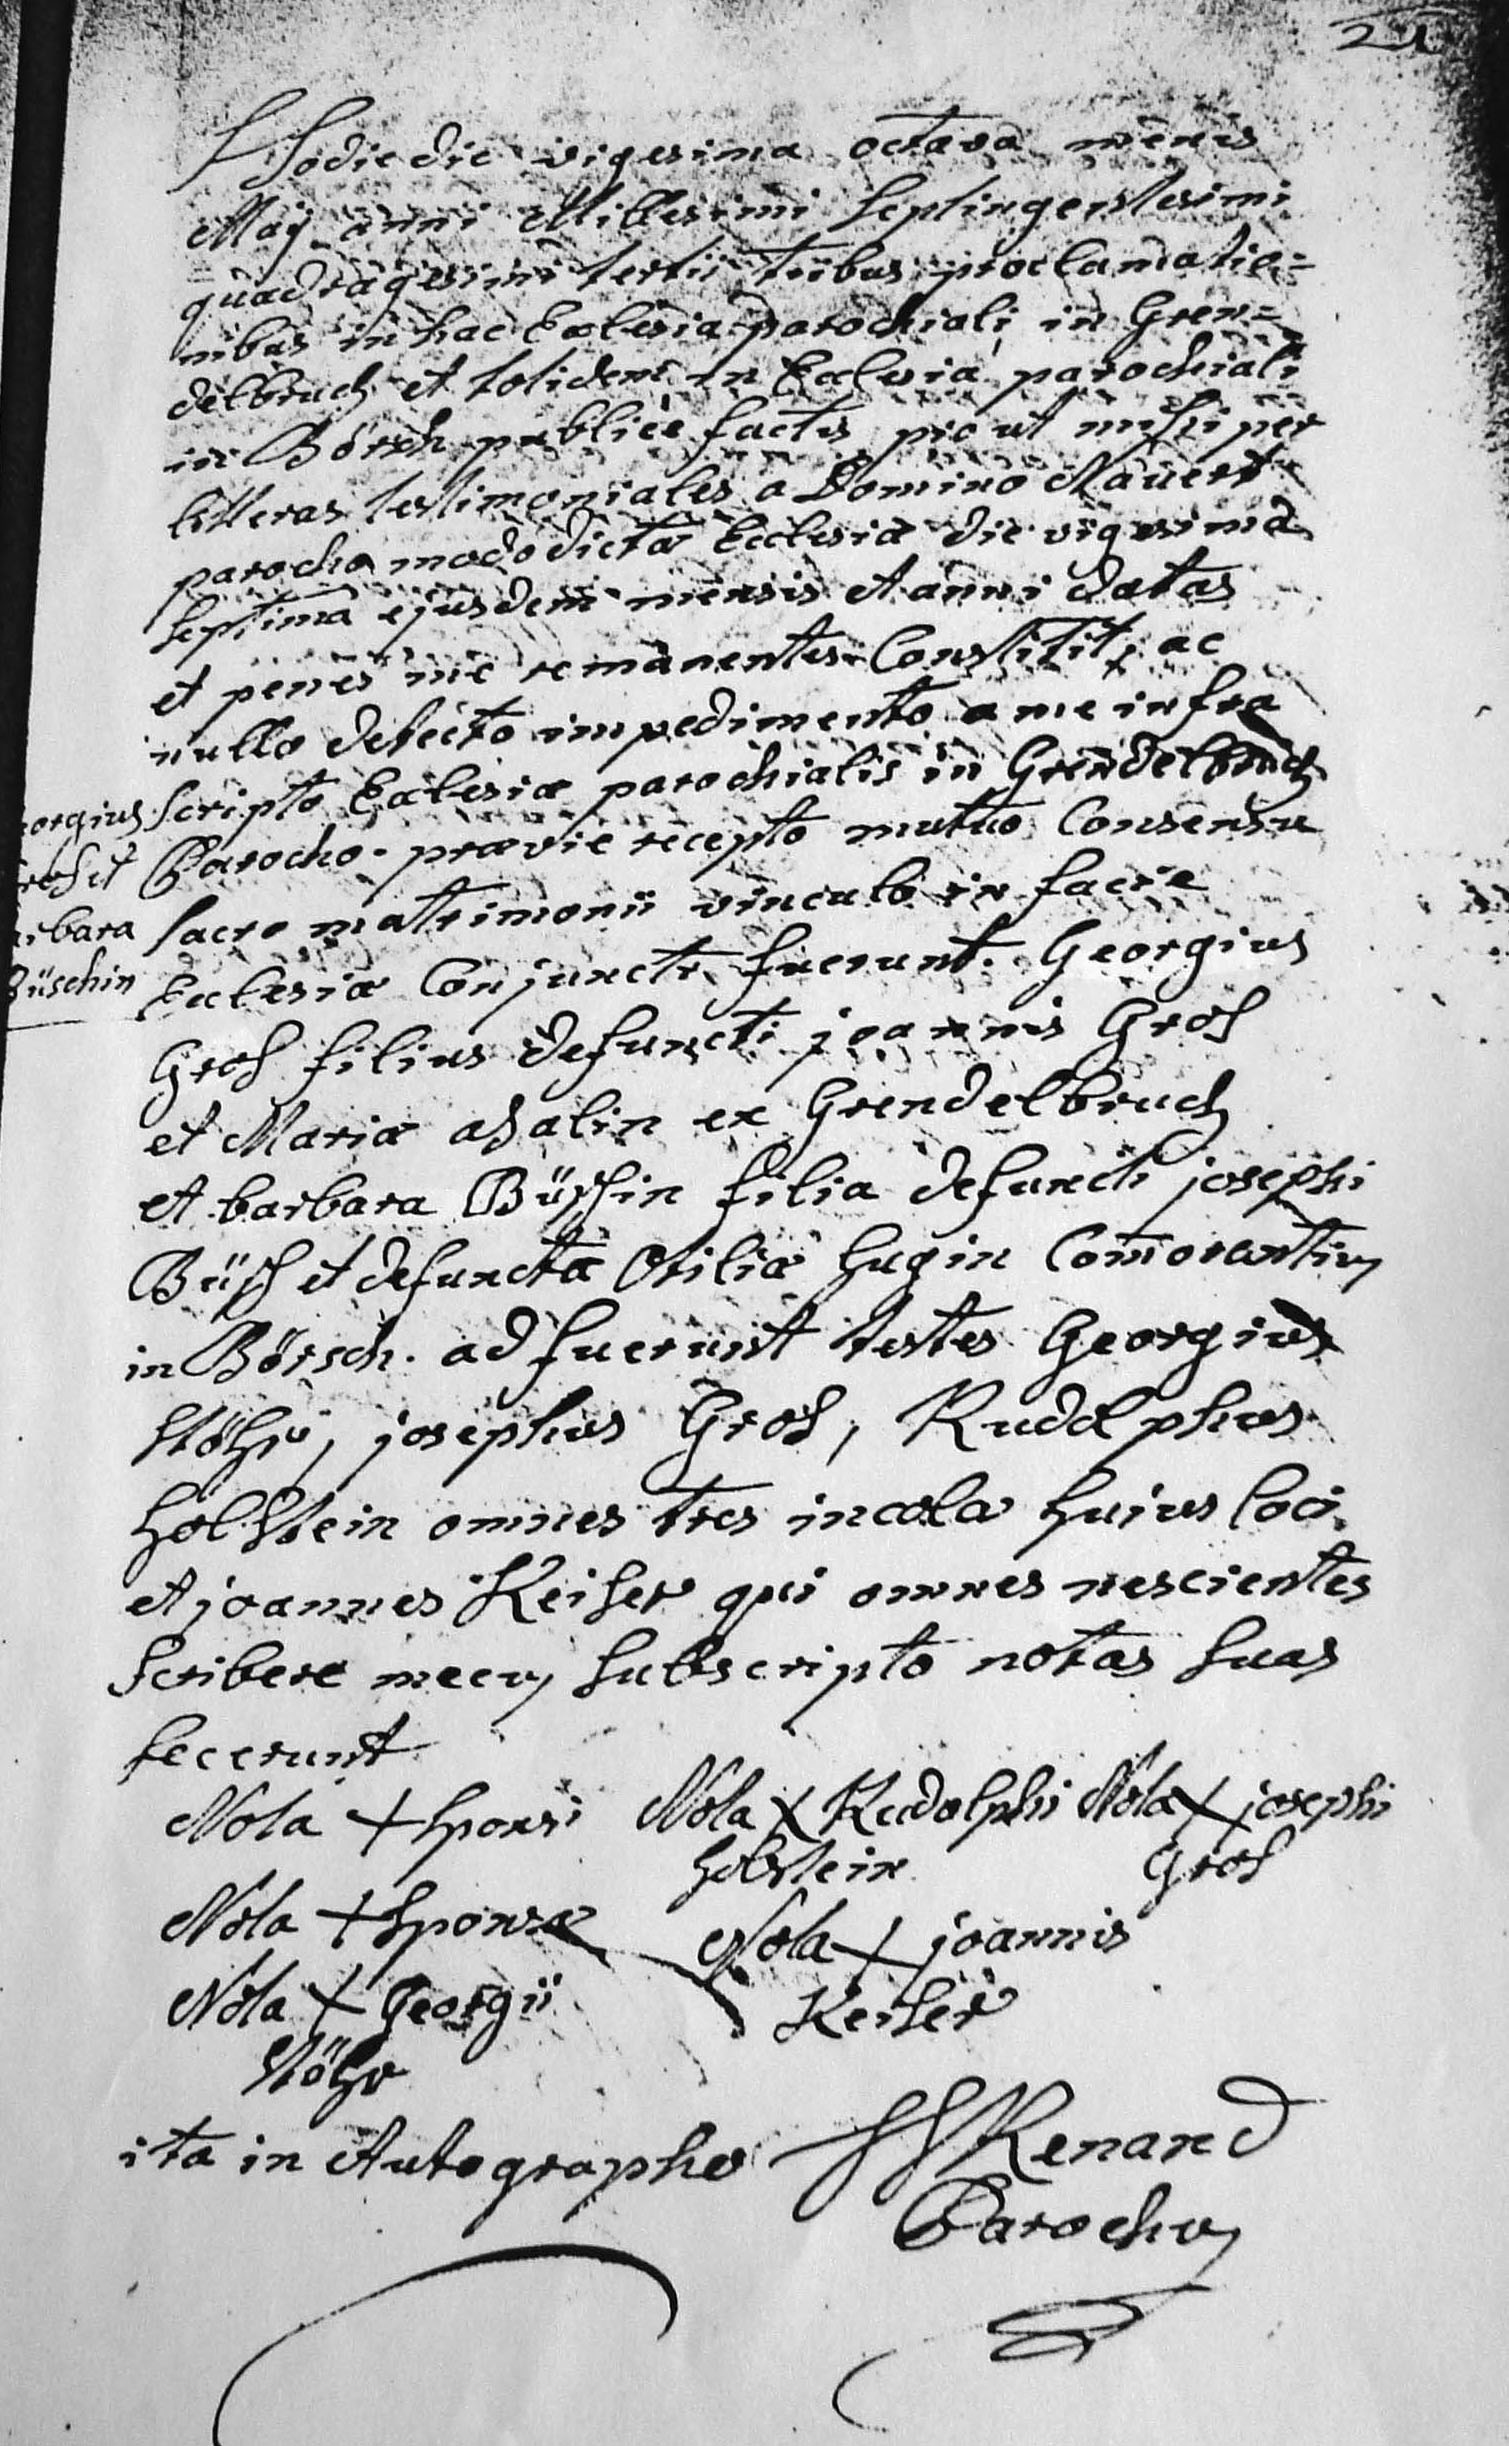 21
Hodie die vigesima octava mensis
Maÿ anni Millesimi Septingentesimi
quadragesimi tertii tribus proclamatio=
nibus in hac Ecclesia parochiali in Gren=
delbruch et totidem in Ecclesia parochiali
in Börsch publice factis prout mihi per
litteras testimoniales a Domino Mauert
parocho modo dictæ Ecclesiæ die vigesima
septima ejusdem mensis et anni datas
et penes me remanentes Constitit, ac
nullo detecto impedimento a me infra
scripto Ecclesiæ parochialis in Grendelbruch
Parocho prævie recepto mutuo Consensu
sacro matrimonii vinculo in facie
Ecclesiæ Conjuncti fuerunt. Georgius
Gros filius defuncti joannis Gros
et Mariæ ahalin ex Grendelbruch
et barbara Büschin filia defuncti josephi
Büsch et defunctæ Otiliæ hugin Comorantium
in Börsch. adfuerunt testes Georgius
Stöhr, josephus Gros, Rudolphus
holstein omnes tres incolæ huius loci
et joannes Keiser qui omnes nescientes
scribere mecum subscripto notas suas
fecerunt
orgius
ros et
rbara
Büschin
Nota + sponsi
Nota + Rudolphi
holstein
Nota + josephi
Gros
Nota + sponsæ
Nota + joannis
Keiser
Nota + Georgii
Stöhr
ita in Autographo
Renard
Parochus